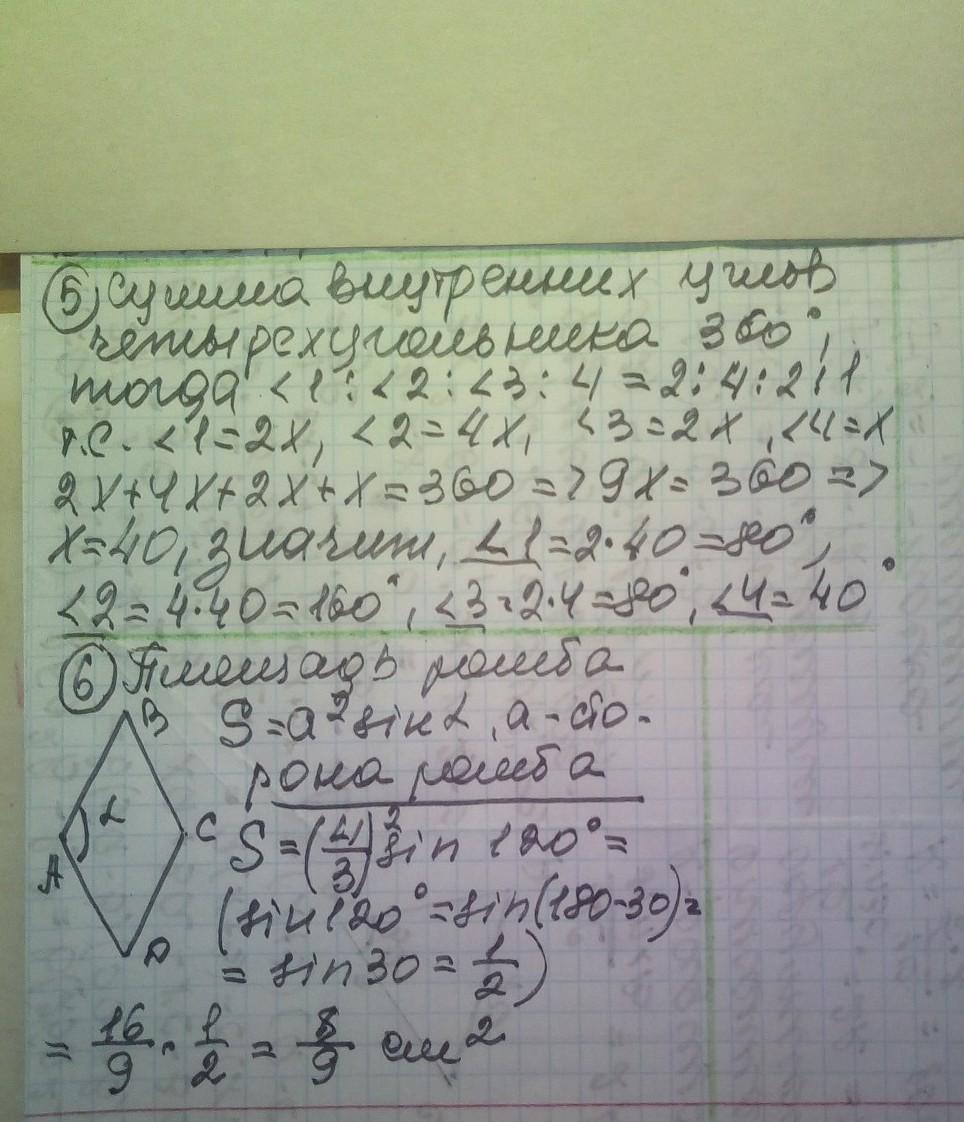 ⑤ Сумма внутренних углов
четырехугольника 360°,
тогда <1 : <2 : <3 : 4 = 2 : 4 : 2 : 1
т.е. <1 = 2x, <2 = 4x, <3 = 2x, <4 = x
2x + 4x + 2x + x = 360 => 9x = 360 =>
x = 40, значит, <1 = 2·40 = 80°,
<2 = 4·40 = 160°, <3 = 2·4 = 80°, <4 = 40°
⑥ Площадь ромба
B
S = a² sin α, a - сто-
рона ромба
α
C
S = (4/3)² sin 120° =
A
(sin 120° = sin(180-30) =
D
= sin 30 = 1/2)
= 16/9 · 1/2 = 8/9 см²